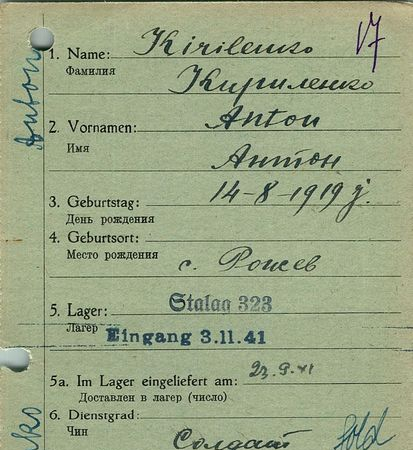 V7
Anton
1. Name: Kirilenko
Фамилия
Кириленко
2. Vornamen: Anton
Имя
Антон
3. Geburtstag: 14-8-1919 г.
День рождения
4. Geburtsort:
Место рождения
с. Рожев
5. Lager: Stalag 323
Лагер
Eingang 3.11.41
5a. Im Lager eingeliefert am: 23.9.41
Доставлен в лагер (число)
6. Dienstgrad:
Чин
Солдат Sold